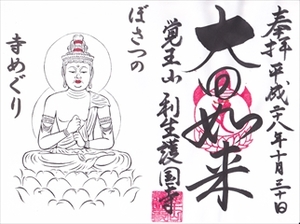 奉拝 平成二十八年十月三十日
大日如来
覚王山 利生護国寺
ぼさつの
寺めぐり